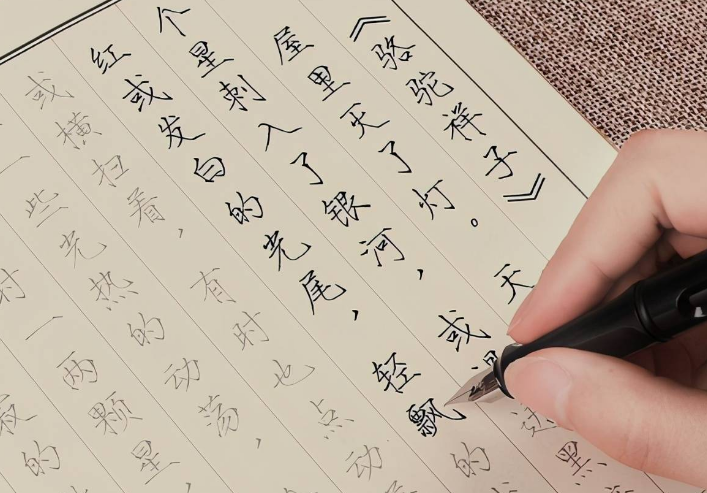 《骆驼祥子》
屋里灭了灯。天
个星刺入了银河，或黑
红或发白的光尾，轻飘的
或横扫着，有时也点动
一些光热的动荡，
时一两颗星
的